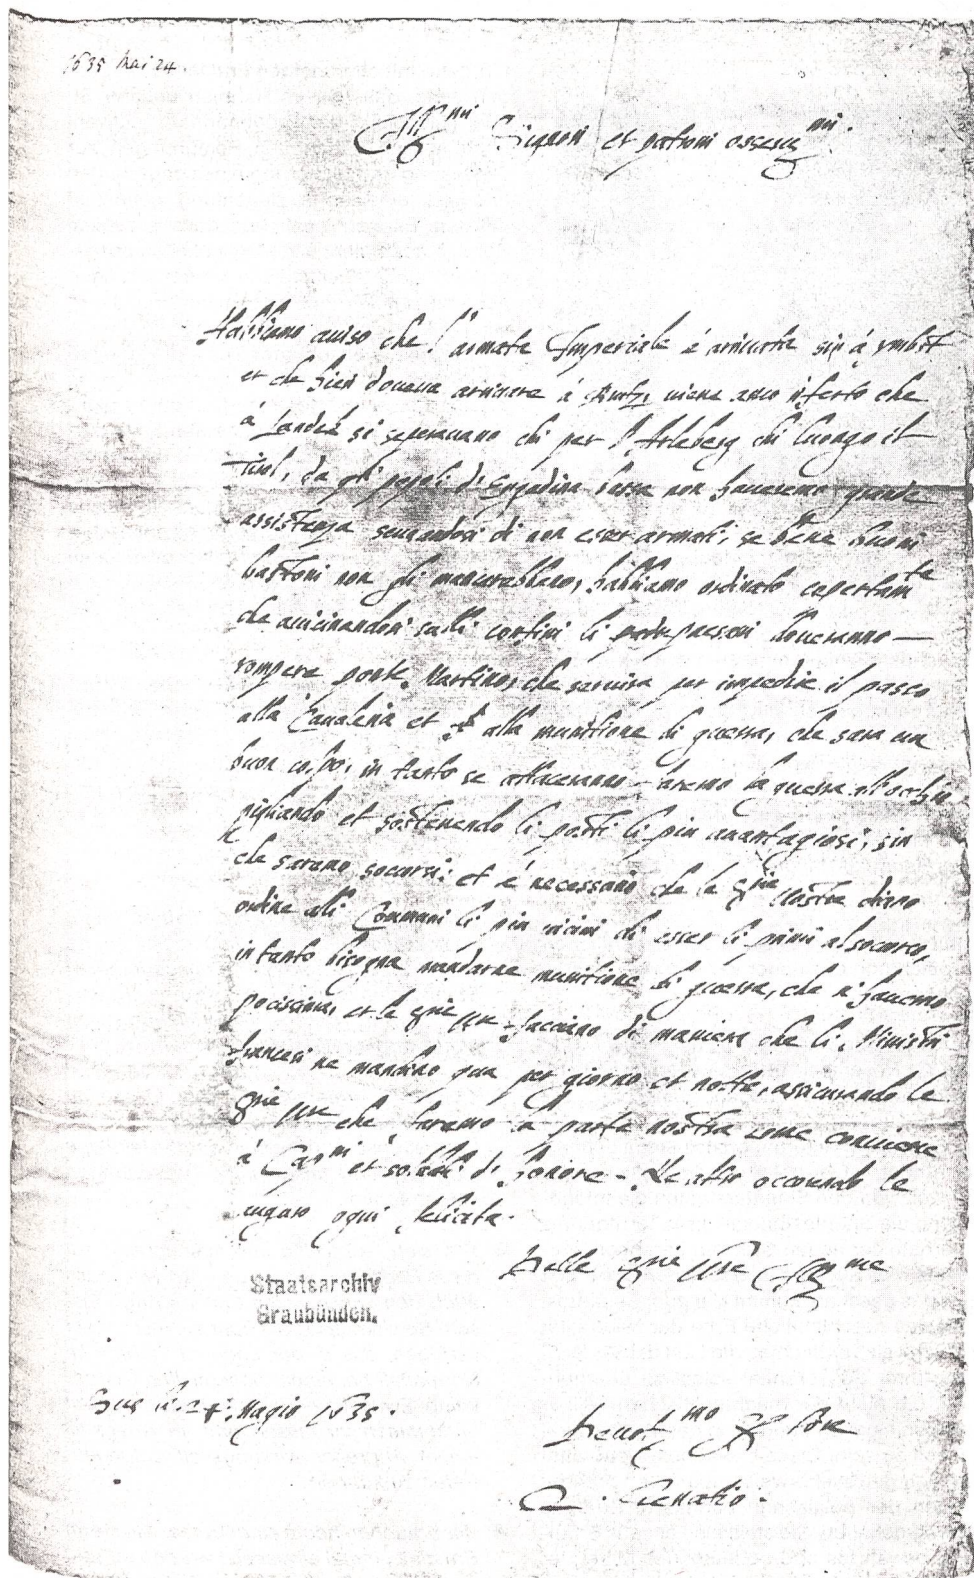 1635 Mai 24.
Ill.mi Signori et patroni osser.mi
Habbiamo auiso che l'armata Imperiale é arriuata sin á
et che hieri doueua arriuare á viene anco riferto che
á Landek si seperauano chi per l'Arleberg chi luongo il
Tirol, da gli popoli d'Engadina bassa non haueremo grande
assistenza scusandosi di non esser armati, se bene buoni
bastoni non gli mancarebbano, habbiamo ordinato
che auicinandosi sulli confini li paesani doueranno —
rompere ponte Martino, che seruira per impedire il passo
alla Caualeria et alla munitione di guerra, che sara un
buon colpo, in tanto se attaceranno faremo la guerra all'occhio
pigliando et sostenendo li posti li piu auantagiosi, sin
che saremo socorsi: et é necessario che le Srie Vostre diano
ordine alli Communi li piu vicini di esser li primi al socorso,
in tanto bisogna mandarne munitione di guerra, che n'hauemo
pocissima, et le Srie Vre facciano di maniera che li Ministri
francesi ne mandino qua per giorno et notte, assicurando le
Srie Vre che faremo la parte nostra come conuiene
á Capni et soldati d'honore - Ne altro occorendo le
auguro ogni felicita.
Delle Srie Vre Ill me
Staatsarchiv
Graubünden.
Sus li 24 Magio 1635.
Deuot mo